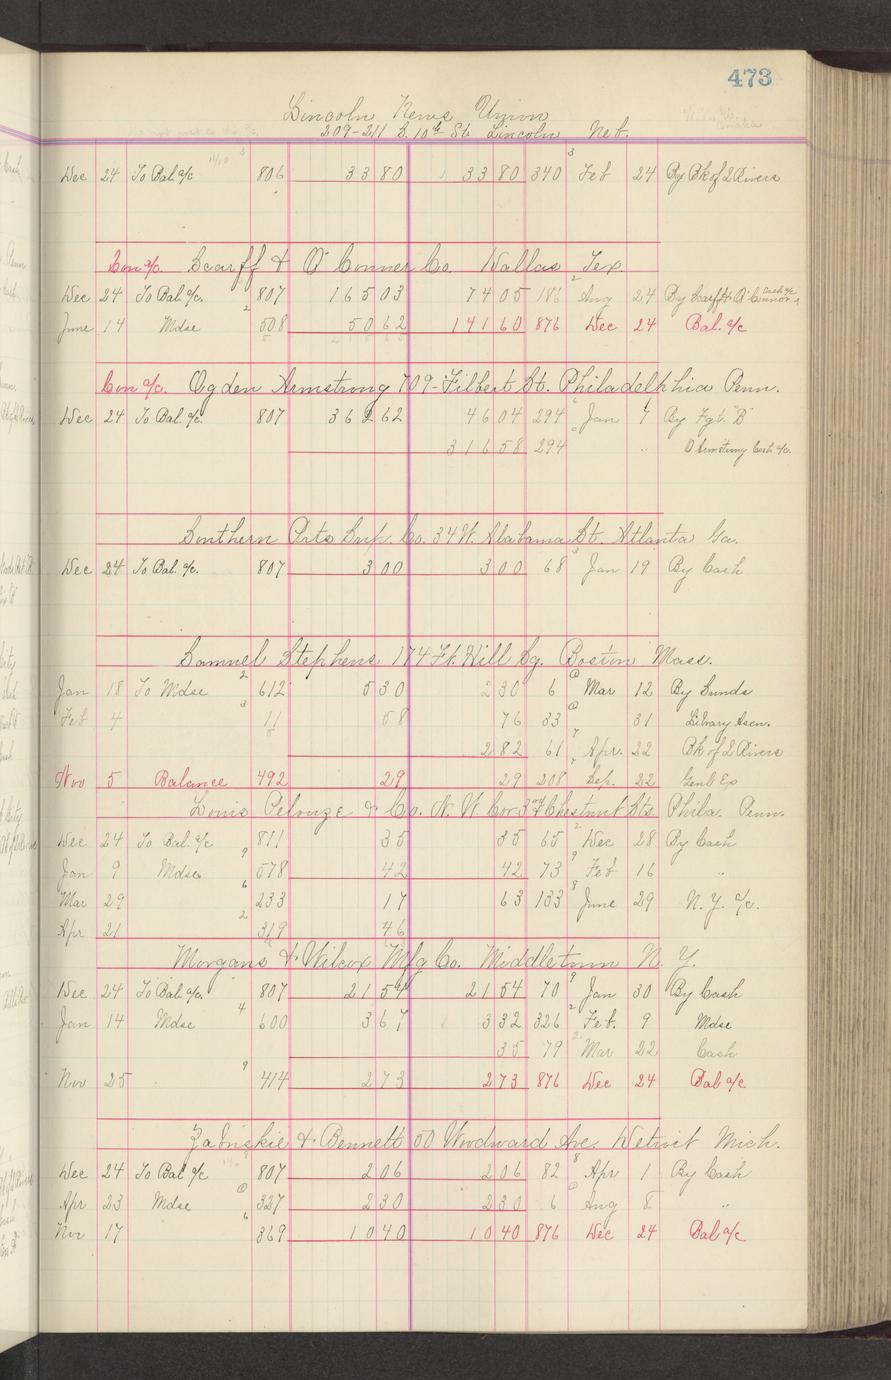 473
Lincoln News Union
209-211 S. 10th St. Lincoln Neb.
Dec 24 To Bal a/c 806 33 80 33 80 340 3 Feb 24 By Bk of 2 Rivers
Con a/c. Scarff & O'Conner Co. Dallas Tex.
Dec 24 To Bal a/c. 807 165 03 74 05 186 2 Aug 24 By Scarff & O'Connor Cash a/c
June 14 Mdse 2 508 50 62 141 60 876 Dec 24 Bal. a/c
Con a/c. Ogden Armstrong 709-Filbert St. Philadelphia Penn.
Dec 24 To Bal. a/c. 807 362 62 46 04 294 6 Jan 7 By Fgt. "B"
316 58 294 " O Armstrong Cash a/c.
Southern Arts Sup. Co. 34 W. Alabama St. Atlanta Ga.
Dec 24 To Bal. a/c. 807 3 00 3 00 68 3 Jan 19 By Cash
Samuel Stephens 174 Ft. Hill Sq. Boston Mass.
Jan 18 To Mdse 2 612 5 30 2 30 6 Mar 12 By Sunds
Feb 4 3 11 58 76 33 31 Library Assn.
2 82 61 7 Apr. 22 Bk of 2 Rivers
Nov 5 Balance 492 29 29 208 Sep. 22 Genl Ex
Louis Pelouze & Co. N. W Cor 3rd & Chestnut Sts. Phila. Penn.
Dec 24 To Bal a/c 811 35 35 65 2 Dec 28 By Cash
Jan 9 Mdse 9 578 42 42 73 9 Feb 16 "
Mar 29 6 233 17 63 133 8 June 29 N. Y. a/c.
Apr 21 2 319 46
Morgans & Wilcox Mfg Co. Middletown N. Y.
Dec 24 To Bal a/c. 807 21 54 21 54 70 9 Jan 30 By Cash
Jan 14 Mdse 4 600 3 67 3 32 326 2 Feb. 9 Mdse
35 79 2 Mar 22 Cash
Nov 25 9 414 2 73 2 73 876 Dec 24 Bal a/c
Zabriskie & Bennett 50 Woodward Ave. Detroit Mich.
Dec 24 To Bal a/c 807 2 06 2 06 82 8 Apr 1 By Cash
Apr 23 Mdse 327 2 30 2 30 6 Aug 8 "
Nov 17 6 369 10 40 10 40 876 Dec 24 Bal a/c